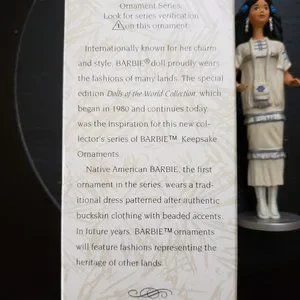 Ornament Series.
Look for series verification
⚠on this ornament.
Internationally known for her charm
and style, BARBIE® doll proudly wears
the fashions of many lands. The special
edition Dolls of the World Collection, which
began in 1980 and continues today,
was the inspiration for this new col-
lector's series of BARBIE™ Keepsake
Ornaments.
Native American BARBIE, the first
ornament in the series, wears a tra-
ditional dress patterned after authentic
buckskin clothing with beaded accents.
In future years, BARBIE™ ornaments
will feature fashions representing the
heritage of other lands.